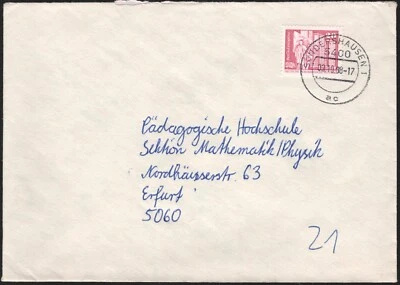 SONDERSHAUSEN 1
5400
03.10.88-17
ac
Pädagogische Hochschule
Sektion Mathematik/Physik
Nordhäuserstr. 63
Erfurt
5060
21